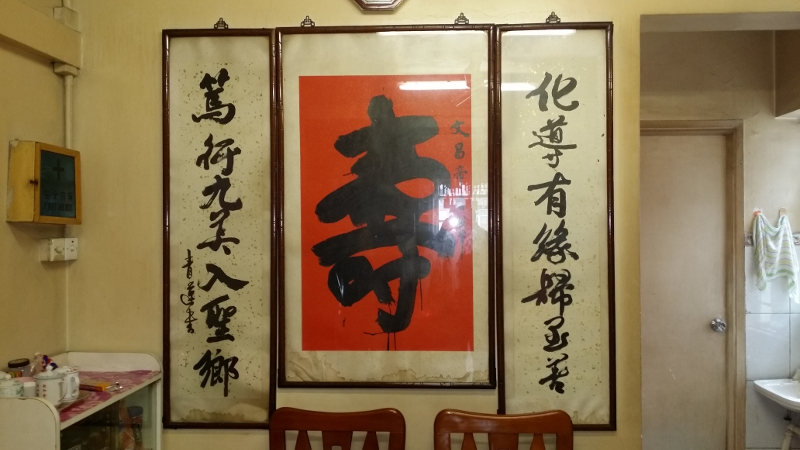 化導有緣歸至善
文昌
壽
篤行九美入聖鄉
青蓮書